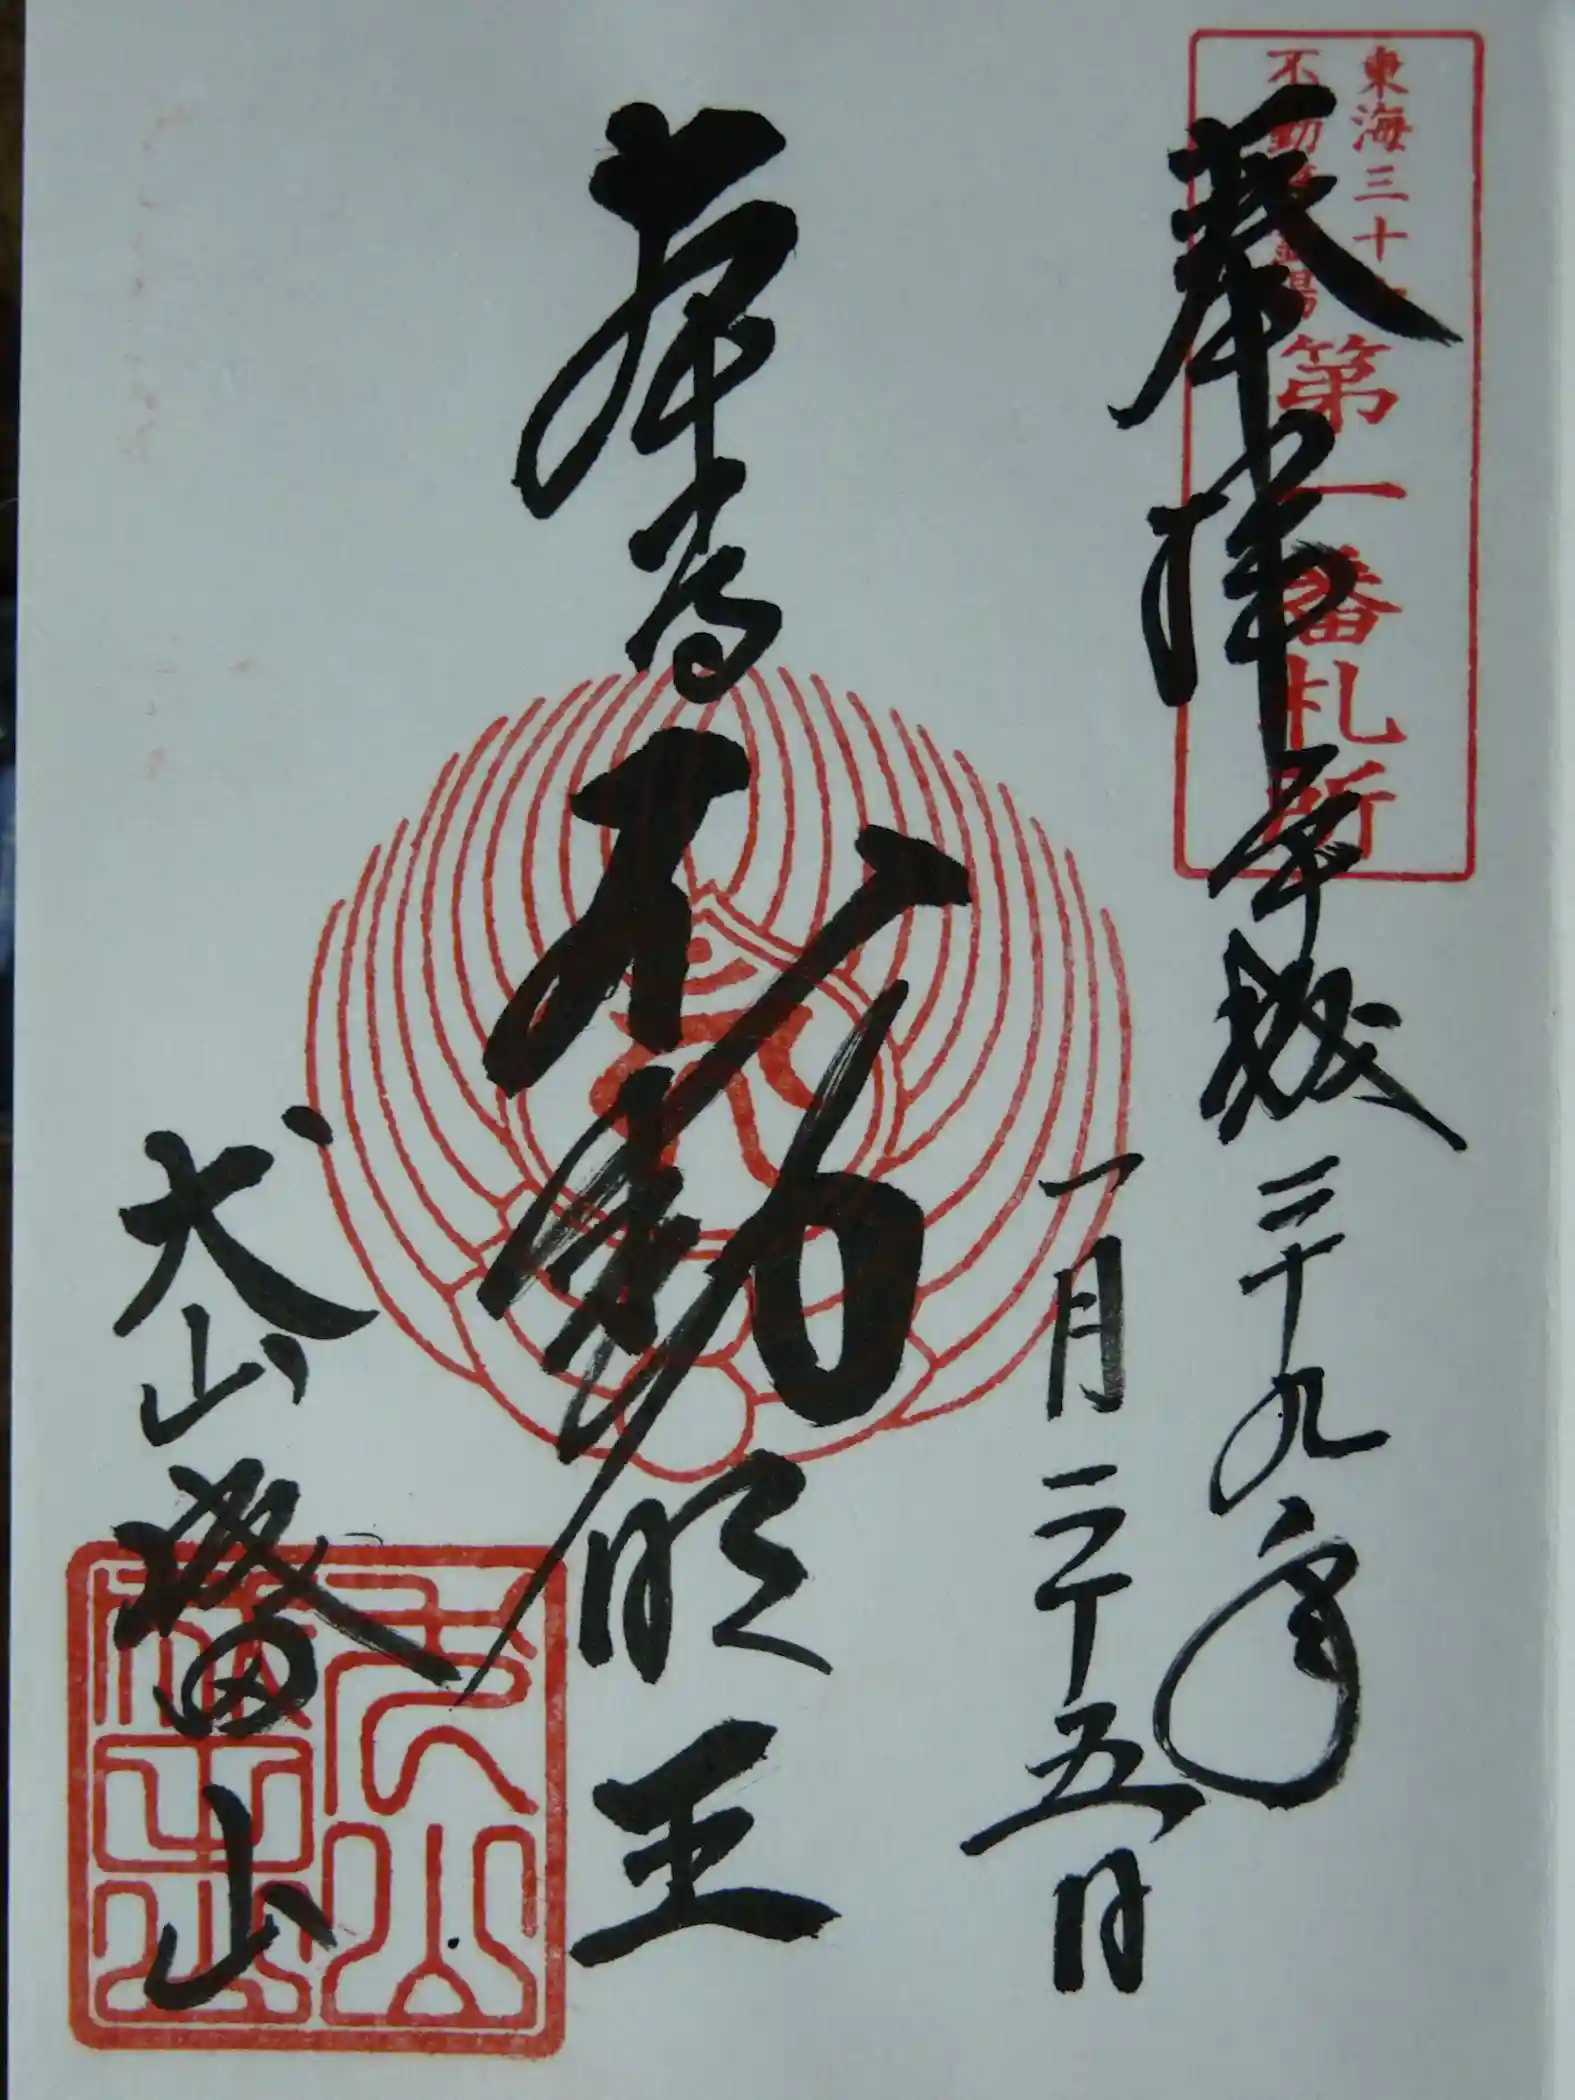 東海三十六
不動尊霊場
第一番札所
奉拝 平成二十九年
一月二十五日
不動明王
犬山成田山